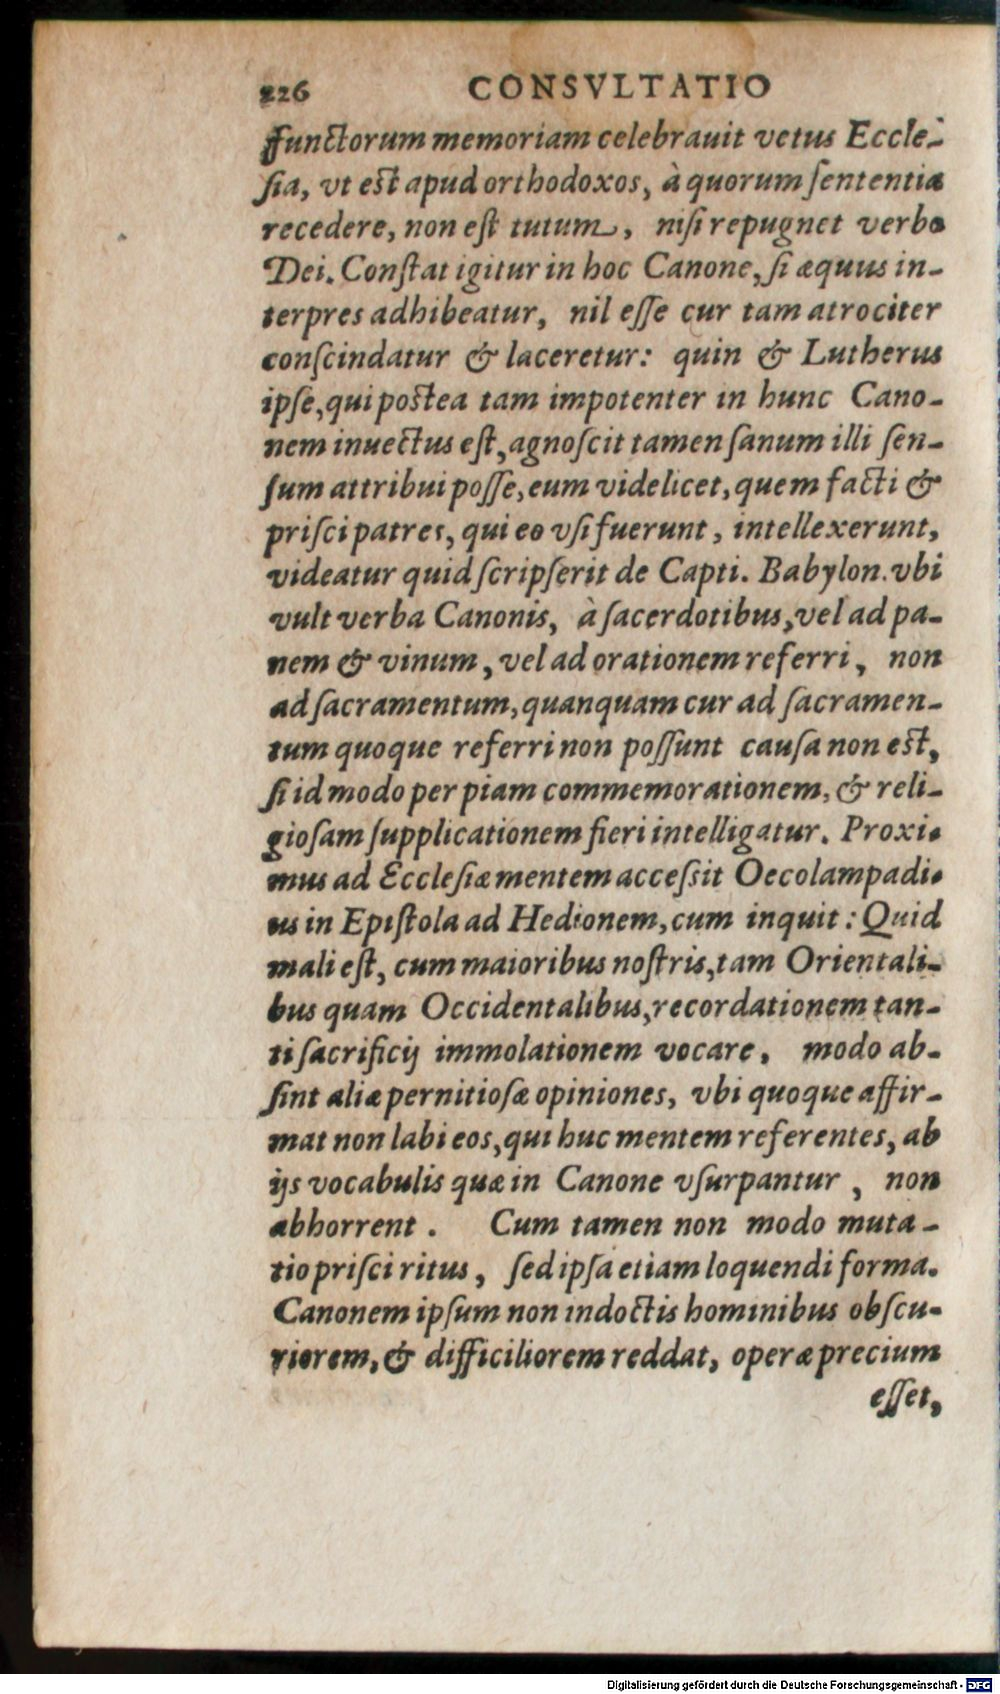 226 CONSVLTATIO
functorum memoriam celebrauit vetus Eccle-
ſia, vt eſt apud orthodoxos, à quorum ſententia
recedere, non eſt tutum, niſi repugnet verbo
Dei. Conſtat igitur in hoc Canone, ſi æquus in-
terpres adhibeatur, nil eſſe cur tam atrociter
conſcindatur & laceretur: quin & Lutherus
ipſe, qui poſtea tam impotenter in hunc Cano-
nem inuectus eſt, agnoſcit tamen ſanum illi ſen-
ſum attribui poſſe, eum videlicet, quem facti &
priſci patres, qui eo vſi fuerunt, intellexerunt,
videatur quid ſcripſerit de Capti. Babylon. vbi
vult verba Canonis, à ſacerdotibus, vel ad pa-
nem & vinum, vel ad orationem referri, non
ad ſacramentum, quanquam cur ad ſacramen-
tum quoque referri non poſſunt cauſa non eſt,
ſi id modo per piam commemorationem, & reli-
gioſam ſupplicationem fieri intelligatur. Proxi-
mus ad Eccleſiæ mentem acceſsit Oecolampadi-
us in Epiſtola ad Hedionem, cum inquit: Quid
mali eſt, cum maioribus noſtris, tam Orientali-
bus quam Occidentalibus, recordationem tan-
ti ſacrificij immolationem vocare, modo ab-
ſint aliæ pernitioſæ opiniones, vbi quoque affir-
mat non labi eos, qui huc mentem referentes, ab
ijs vocabulis quæ in Canone vſurpantur, non
abhorrent. Cum tamen non modo muta-
tio priſci ritus, ſed ipſa etiam loquendi forma.
Canonem ipſum non indoctis hominibus obſcu-
riorem, & difficiliorem reddat, operæ precium
eſſet,
Digitalisierung gefördert durch die Deutsche Forschungsgemeinschaft - DFG